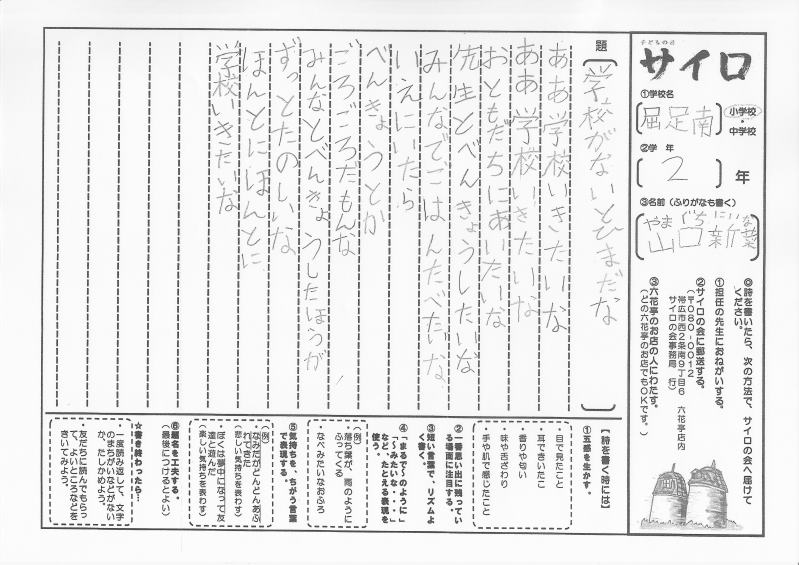 子どもの詩
サイロ
①学校名
屈足南
小学校・中学校
②学年
2年
③名前（ふりがなも書く）
やまぐちにいな
山口新菜
◎詩を書いたら、次の方法で、サイロの会へ届けて
ください。
①担任の先生におねがいする。
②サイロの会に郵送する。
（〒080-0012
帯広市西2条南9丁目6 六花亭店内
サイロの会事務局 行）
③六花亭のお店の人にわたす。
（どの六花亭のお店でもOKです。）
題
学校がないとひまだな
ああ学校いきたいな
ああ学校いきたいな
おともだちにあいたいな
先生とべんきょうしたいな
みんなでごはんたべたいな
いえにいたら
べんきょうとか
ごろごろだもんな
みんなとべんきょうしたほうが
ずっとたのしいな
ほんとにほんとに
学校いきたいな
【詩を書く時には】
①五感を生かす。
・目で見たこと
・耳できいたこと
・香りや匂い
・味や舌ざわり
・手や肌で感じたこと
②一番思い出に残ってい
る場面に注目する。
③短い言葉で、リズムよ
く書く。
④「まるで〜のように」
「〜みたいな・・」
など、たとえる表現を
使う。
（例）
・落ち葉が、雨のように
ふってくる
・なべみたいなおふろ
⑤気持ちを、ちがう言葉
で表現する。
（例）
・なみだがどんどんあふ
れてきた
（悲しい気持ちを表わす）
・ぼくは夢中になって友
達と遊んだ
（楽しい気持ちを表わす）
⑥題名を工夫する。
（最後につけるとよい）
★書き終わったら…
一度読み返して、文字
のまちがいなどがない
か、たしかめよう。
友だちに読んでもらっ
て、よいところなどを
きいてみよう。